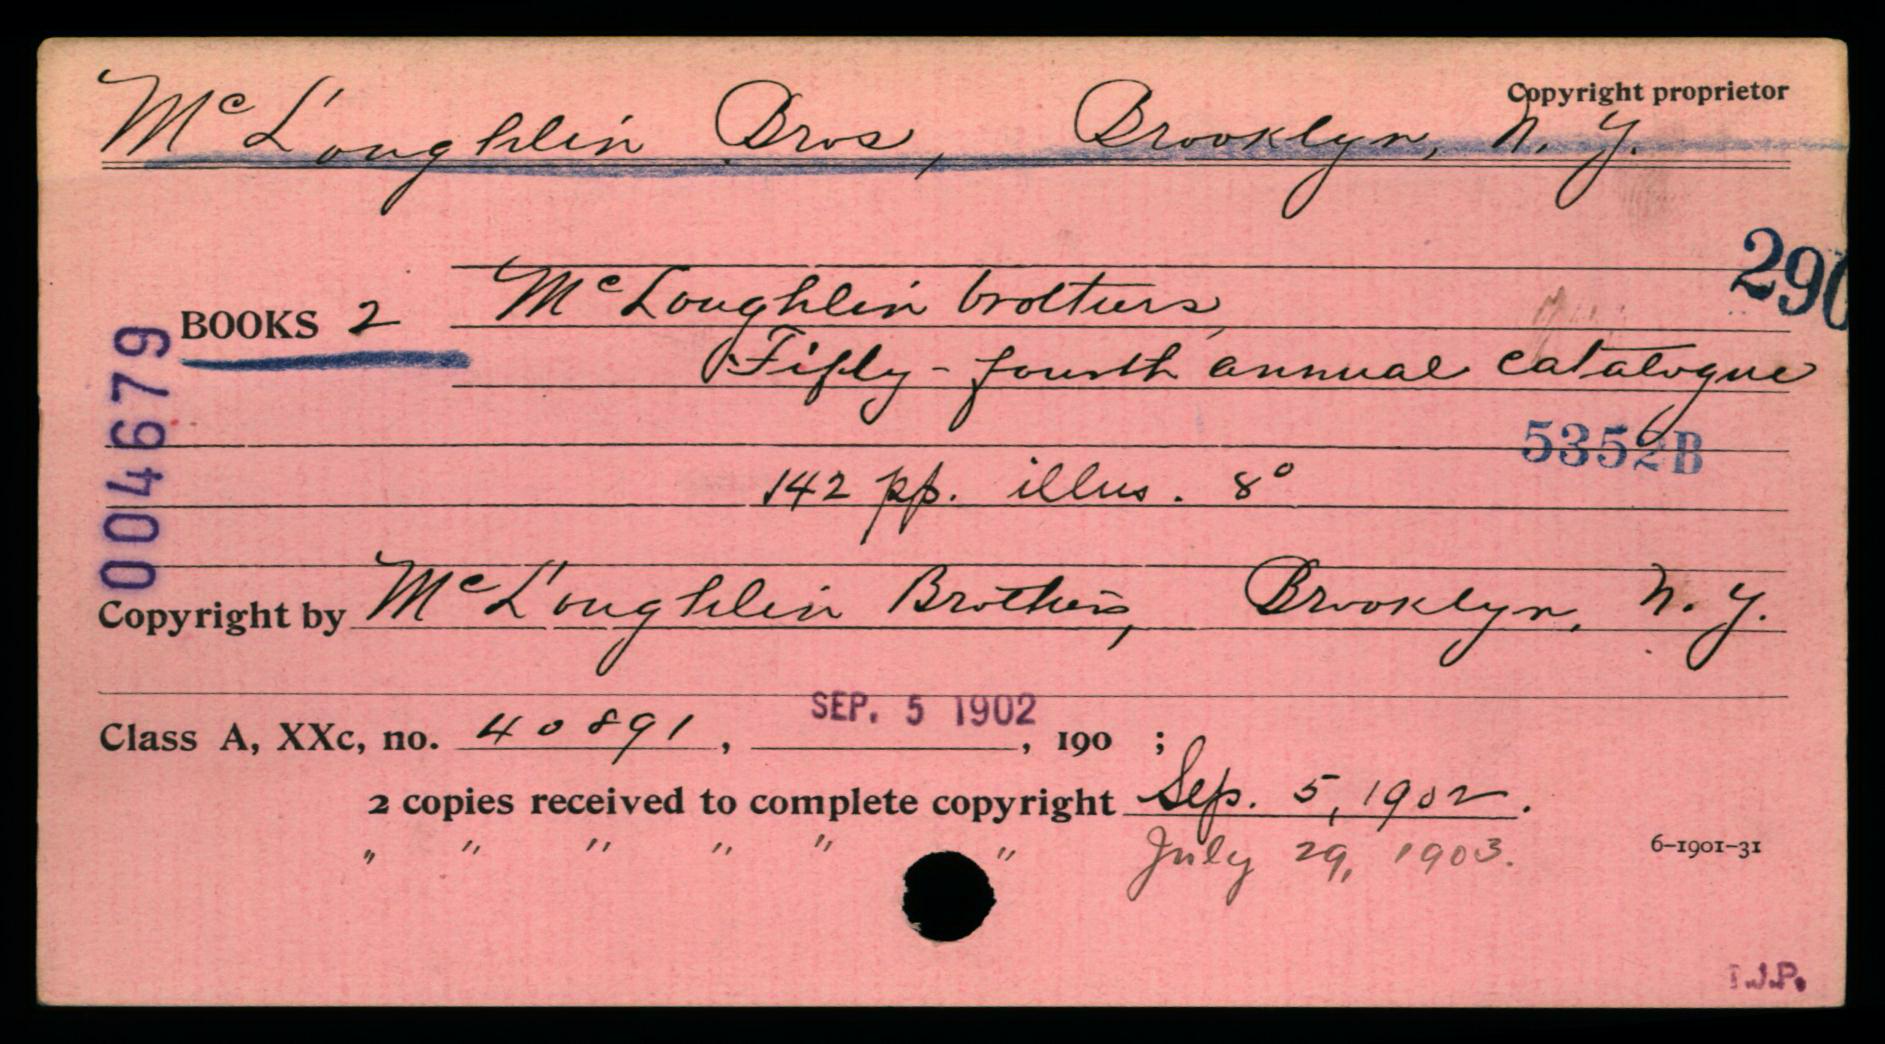 Copyright proprietor
McLoughlin Bros, Brooklyn, N. Y.
290
McLoughlin brothers
BOOKS 2
Fifty-fourth annual catalogue
004679
5352B
142 pp. illus. 8°
Copyright by McLoughlin Brothers, Brooklyn, N. Y.
SEP. 5 1902
Class A, XXc, no. 40891, , 190 ;
2 copies received to complete copyright Sep. 5, 1902.
" " " " " " July 29, 1903.
6-1901-31